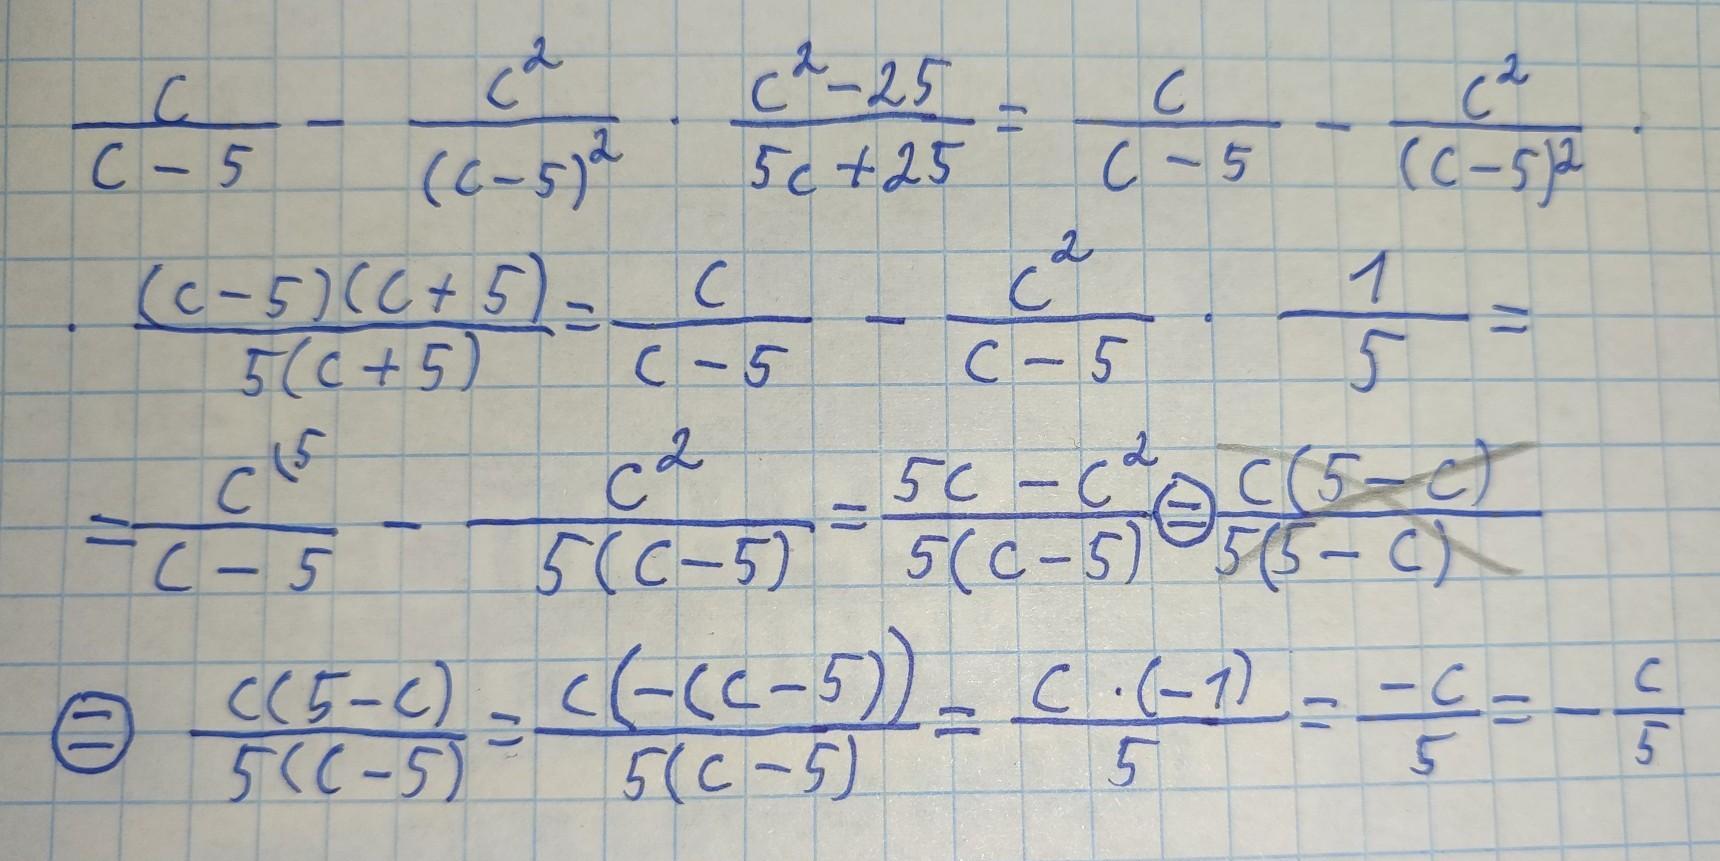 c/(c-5) - c²/(c-5)² · (c²-25)/(5c+25) = c/(c-5) - c²/(c-5)² ·
· ((c-5)(c+5))/(5(c+5)) = c/(c-5) - c²/(c-5) · 1/5 =
= c⁽⁵/(c-5) - c²/(5(c-5)) = (5c-c²)/(5(c-5)) ⊜ (c(5-c))/(5(5-c))
⊜ (c(5-c))/(5(c-5)) = (c(-(c-5)))/(5(c-5)) = (c·(-1))/5 = (-c)/5 = - c/5